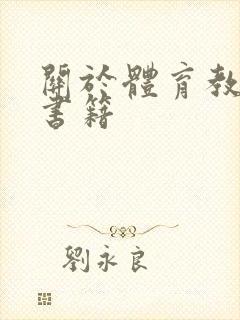 關於體育教
書籍
劉永良